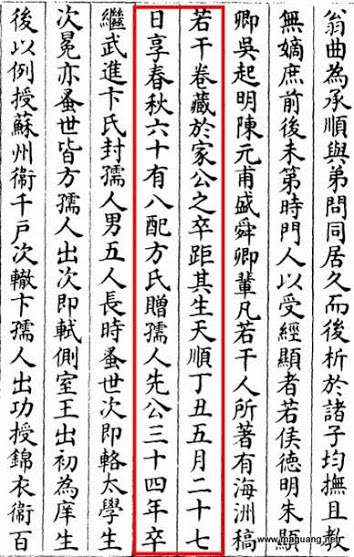 翁曲為承順與弟問同居久而後析於諸子均撫且教
無嫡庶前後未第時門人以受經顯者若侯德明朱顯
卿吳起明陳元甫盛舜卿輩凡若干人所著有海洲稿
若干卷藏於家公之卒距其生天順丁丑五月二十七
日享春秋六十有八配方氏贈孺人先公三十四年卒
繼武進卞氏封孺人男五人長時蚤世次即輅太學生
次冕亦蚤世皆方孺人出次即軾側室王出初為庠生
後以例授蘇州衛千戶次轍卞孺人出功授錦衣衛百
www.maguang.net